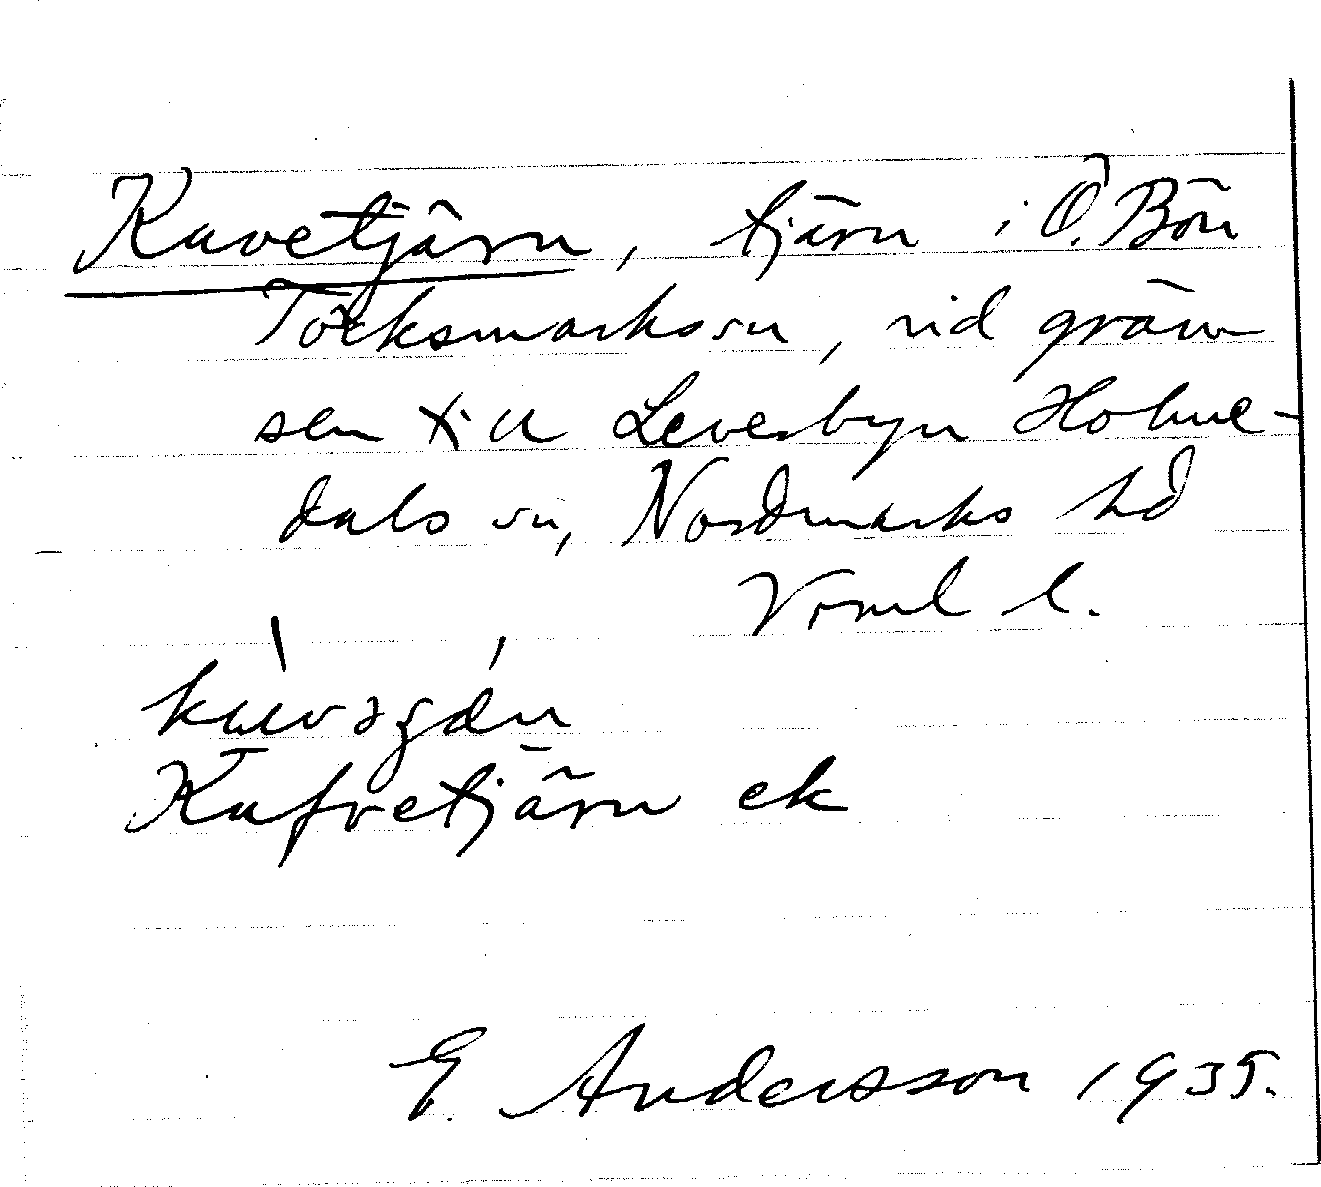 Kuvetjärn, tjärn i Ö. Bön
Töcksmarks sn, vid grän
sen till Leverbyn Holme-
dals sn, Nordmarks hd
Vrml l.
Kufvetjärn ek
E. Andersson 1935.